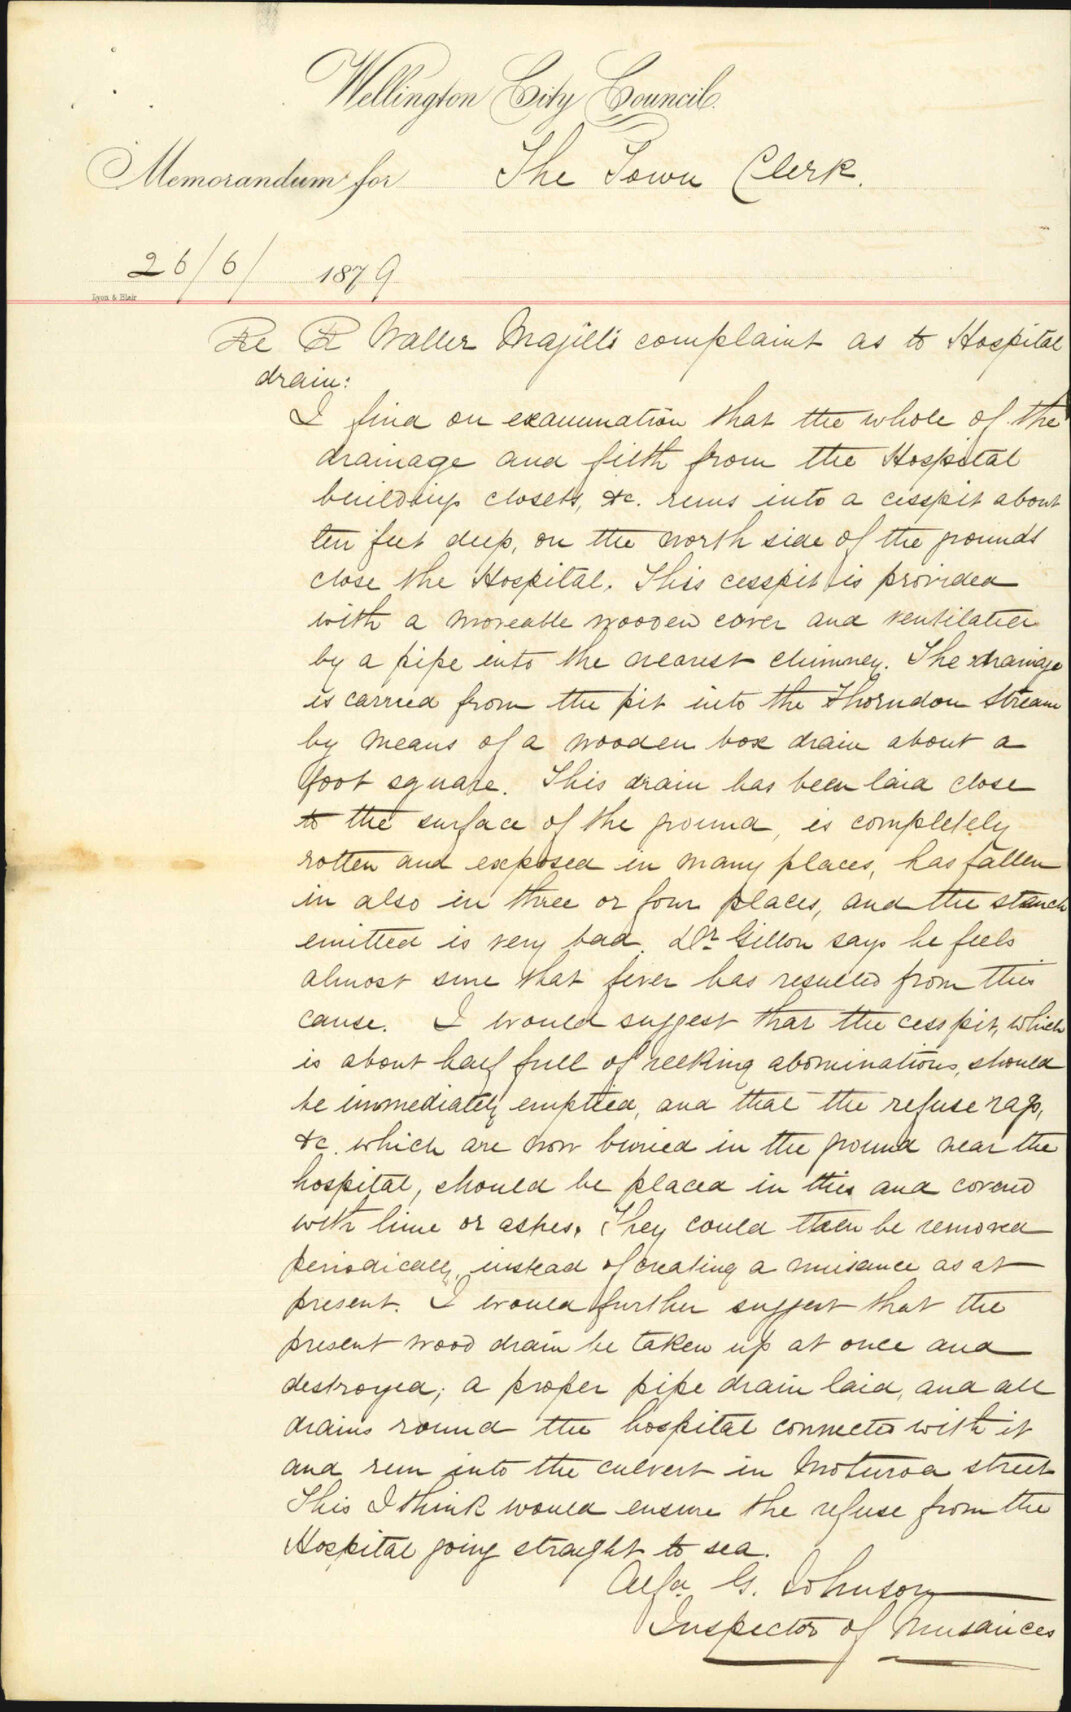 Wellington City Council.
Memorandum for The Town Clerk.
26/6/ 1879
Lyon & Blair
Re R Waller Magill's complaint as to Hospital
drain:
I find on examination that the whole of the
drainage and filth from the Hospital
buildings closets, &c. runs into a cesspit about
ten feet deep, on the north side of the grounds
close the Hospital. This cesspit is provided
with a moveable wooden cover and ventilated
by a pipe into the nearest chimney. The drainage
is carried from the pit into the Thorndon Stream
by means of a wooden box drain about a
foot square. This drain has been laid close
to the surface of the ground, is completely
rotten and exposed in many places, has fallen
in also in three or four places, and the stench
emitted is very bad. Dr. Gillon says he feels
almost sure that fever has resulted from this
cause. I would suggest that the cesspit, which
is about half full of reeking abominations, should
be immediately emptied, and that the refuse rags,
&c. which are now buried in the ground near the
hospital, should be placed in this and covered
with lime or ashes. They could then be removed
periodically, instead of creating a nuisance as at
present. I would further suggest that the
present wood drain be taken up at once and
destroyed; a proper pipe drain laid, and all
drains round the hospital connected with it
and run into the culvert in Moturoa street
This I think would ensure the refuse from the
Hospital going straight to sea.
G. Johnson
Inspector of Nusances